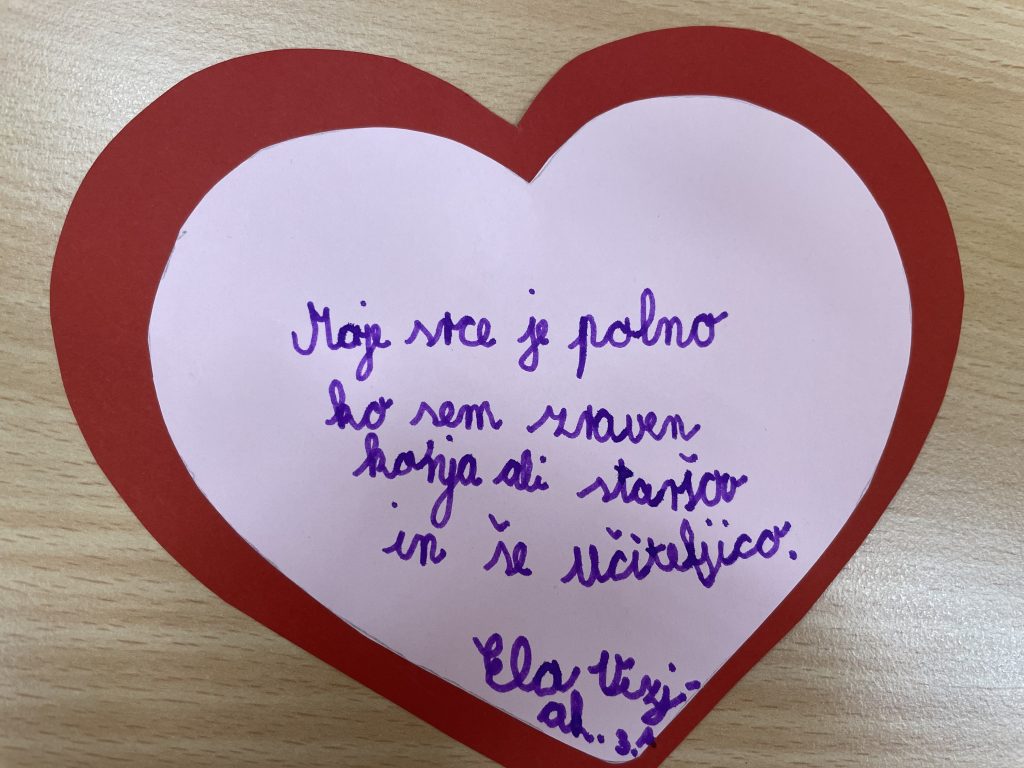 Moje srce je polno
ko sem zraven
konja ali staršov
in še učiteljico.
Ela Vizj-
ak. 3.